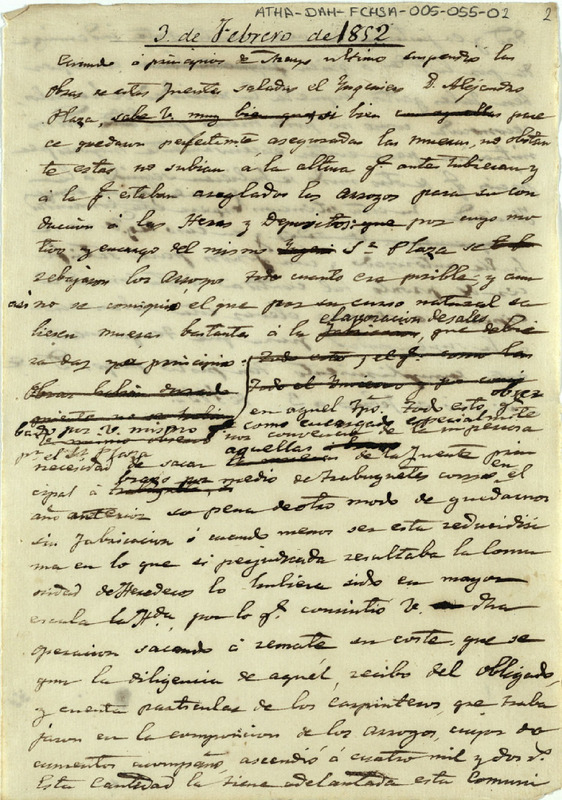 ATHA-DAH-FCHSA-005-055-02
2
3 de Febrero de 1852
Cuando á principios de Mayo ultimo suspendió las
Obras de estas fuentes saladas el Yngeniero D. Alejandro
Plaza, sabe V. muy bien que si bien en aquellas pare
ce quedaron perfectamte aseguradas las mueras, no obstan
te estas no subian á la altura q. antes tubieran y
á la q. estaban arreglados los Arroyos para su con
ducion á las Heras y Depositos; que por cuyo mo
tivo, y encargo del mismo Sr. Plaza se
rebajaron los Arroyos todo cuanto era posible y aun
asi no se consiguió el que por su curso natural sa
liesen mueras bastantes á la elaboracion de sales
que debie
ra dar pr principio. todo esto, el q. como las
Obras habian durado todo el Ymbierno
en aquel tpo. todo esto obser
bado por V. mismo como encargado especialmte
pr el Sr Plaza nos convencio de la imperiosa
necesidad de sacar aquellas de la fuente prin
cipal á brazo por medio de trabuquetes en el
año anterior so pena de otro modo de quedarnos
sin fabricacion ó cuando menos ser esta reducidisi
ma en lo que si perjudicada resultaba la Comu
nidad de Herederos lo hubiera sido en mayor
escala la Hda, por lo q. consintió V. dha
operacion sacando á remate su coste, que se
gun la diligencia de aquél, recibo del obligado,
y cuenta particular de los carpinteros, que traba
jaron en la composicion de los arroyos, cuyos do
cumentos acompaño, ascendió á cuatro mil y dos rs.
Esta Cantidad la tiene adelantada esta Comuni